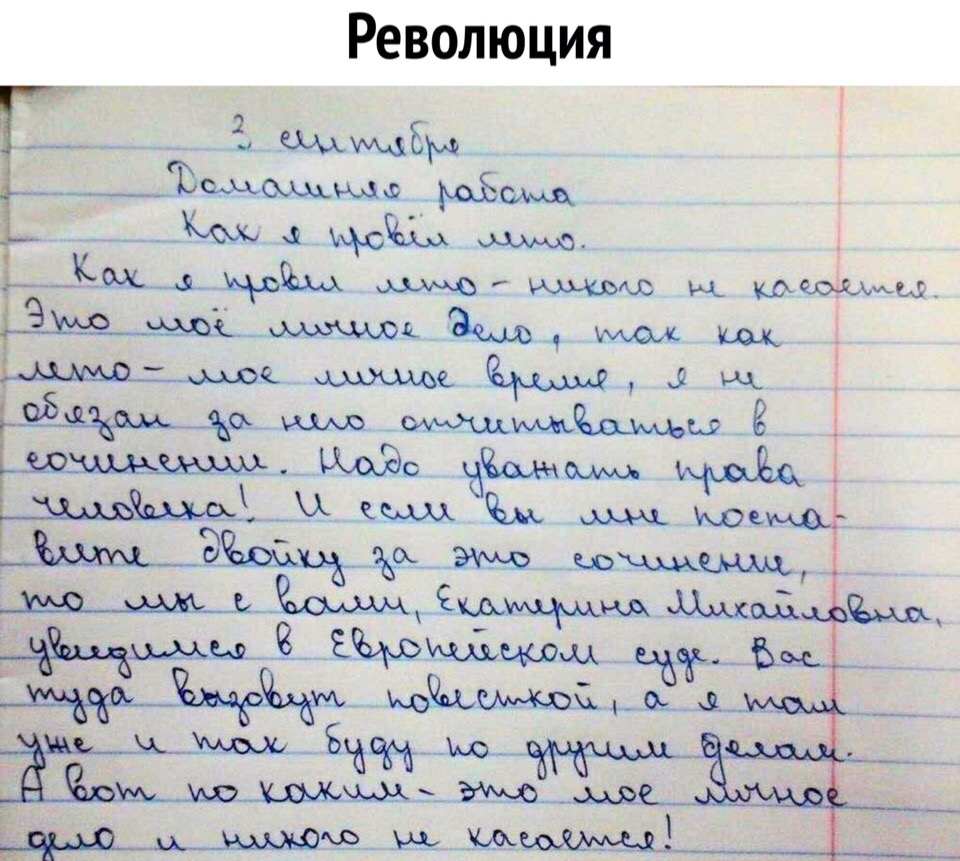 Революция
3 сентября
Домашняя работа
Как я провёл лето.
Как я провел лето - никого не касается.
Это моё личное дело, так как
лето - мое личное время, я не
обязан за него отчитываться в
сочинении. Надо уважать права
человека! И если вы мне поста-
вите двойку за это сочинение,
то мы с вами, Екатерина Михайловна,
увидимся в Европейском суде. Вас
туда вызовут повесткой, а я там
уже и так буду по другим делам.
А вот по каким - это мое личное
дело и никого не касается!